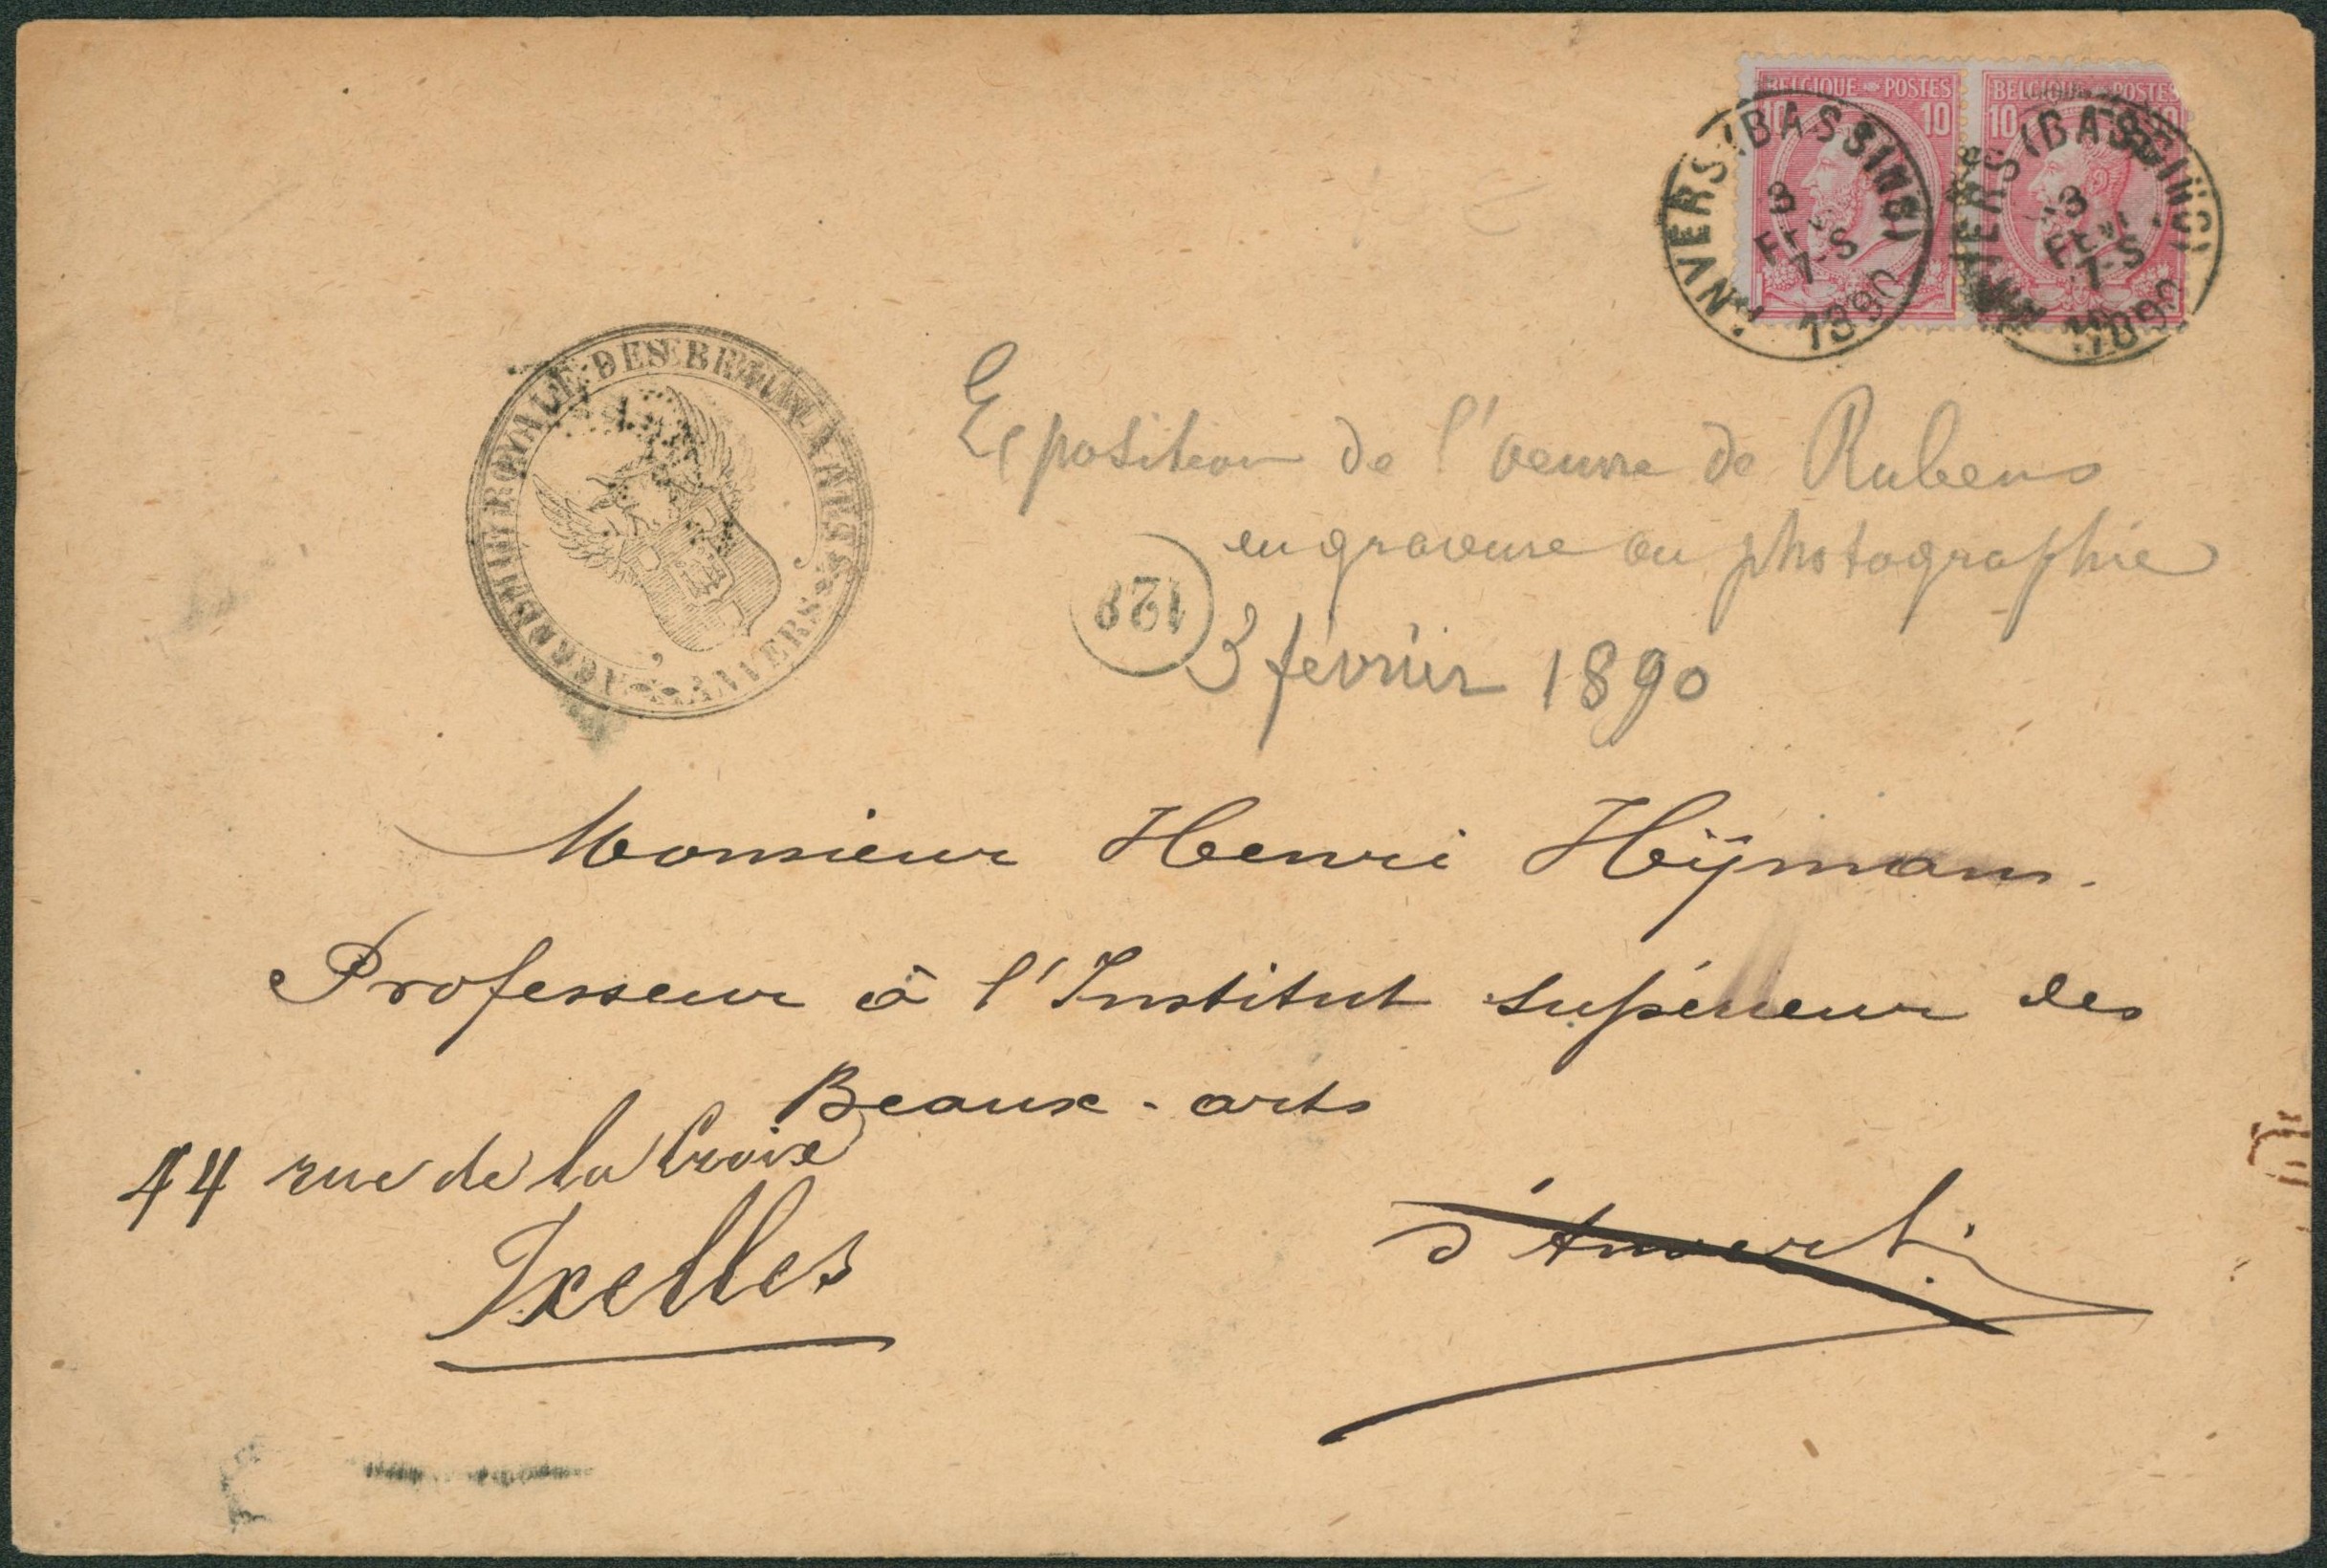 BELGIQUE POSTES
10 10
BELGIQUE POSTES
10 10
ANVERS (BASSINS)
3
FEVR
7-S
1890
ANVERS (BASSINS)
3
FEVR
7-S
1890
ACADEMIE ROYALE DES BEAUX ARTS
ANVERS
Exposition de l'oeuvre de Rubens
en gravure ou photographie
128
3 février 1890
Monsieur Henri Hÿmans.
Professeur à l'Institut supérieur des
Beaux-arts
44 rue de la Croix
Ixelles
d'Anvers